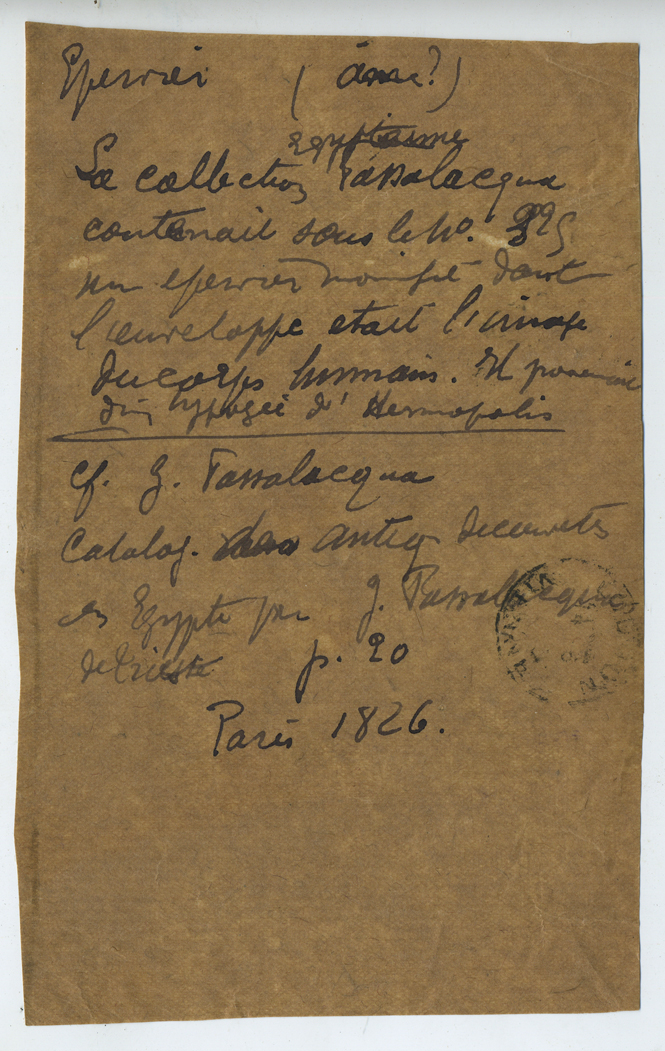 Epervier (âme?)
egyptienne
La collection Passalacqua
contenait sous le No.
un epervier momifié dont
l'enveloppe etait l'image
du corps humain. Il provenait
d'un hypogée d'Hermopolis
cf. G. Passalacqua
Catalog. des antiq decouvertes
en Egypte par J. Passalacqua
de Trieste p. 20
Paris 1826.